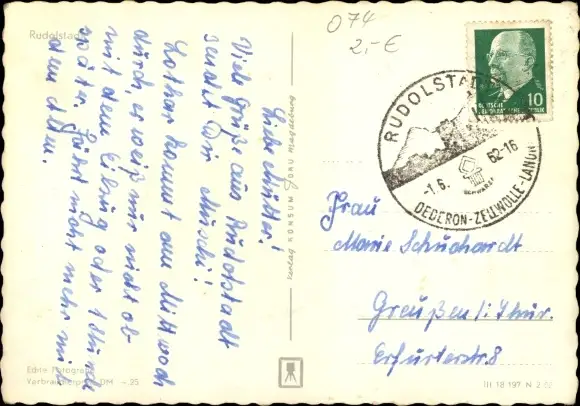 Rudolstadt
074
2,- €
Liebe Mutter!
Viele Grüße aus Rudolstadt
sendet Dir Muschi!
Lothar kommt am Mittwoch
durch, er weiß nur nicht ob
mit dem Eilzug oder 1 Stunde
später. Fährt nicht mehr mit
dem alten.
Echte Fotografie
Verbraucherpreis DM -.35
Verlag KONSUM FOKU Magdeburg
DEUTSCHE
DEMOKRATISCHE REPUBLIK
10
RUDOLSTADT
-1.6. 62-16
SCHWARZA
DEDERON-ZELLWOLLE-LANON
Frau
Marie Schuchardt
Greußen i. Thür.
Erfurterstr. 8
III 18 197 N 2.62